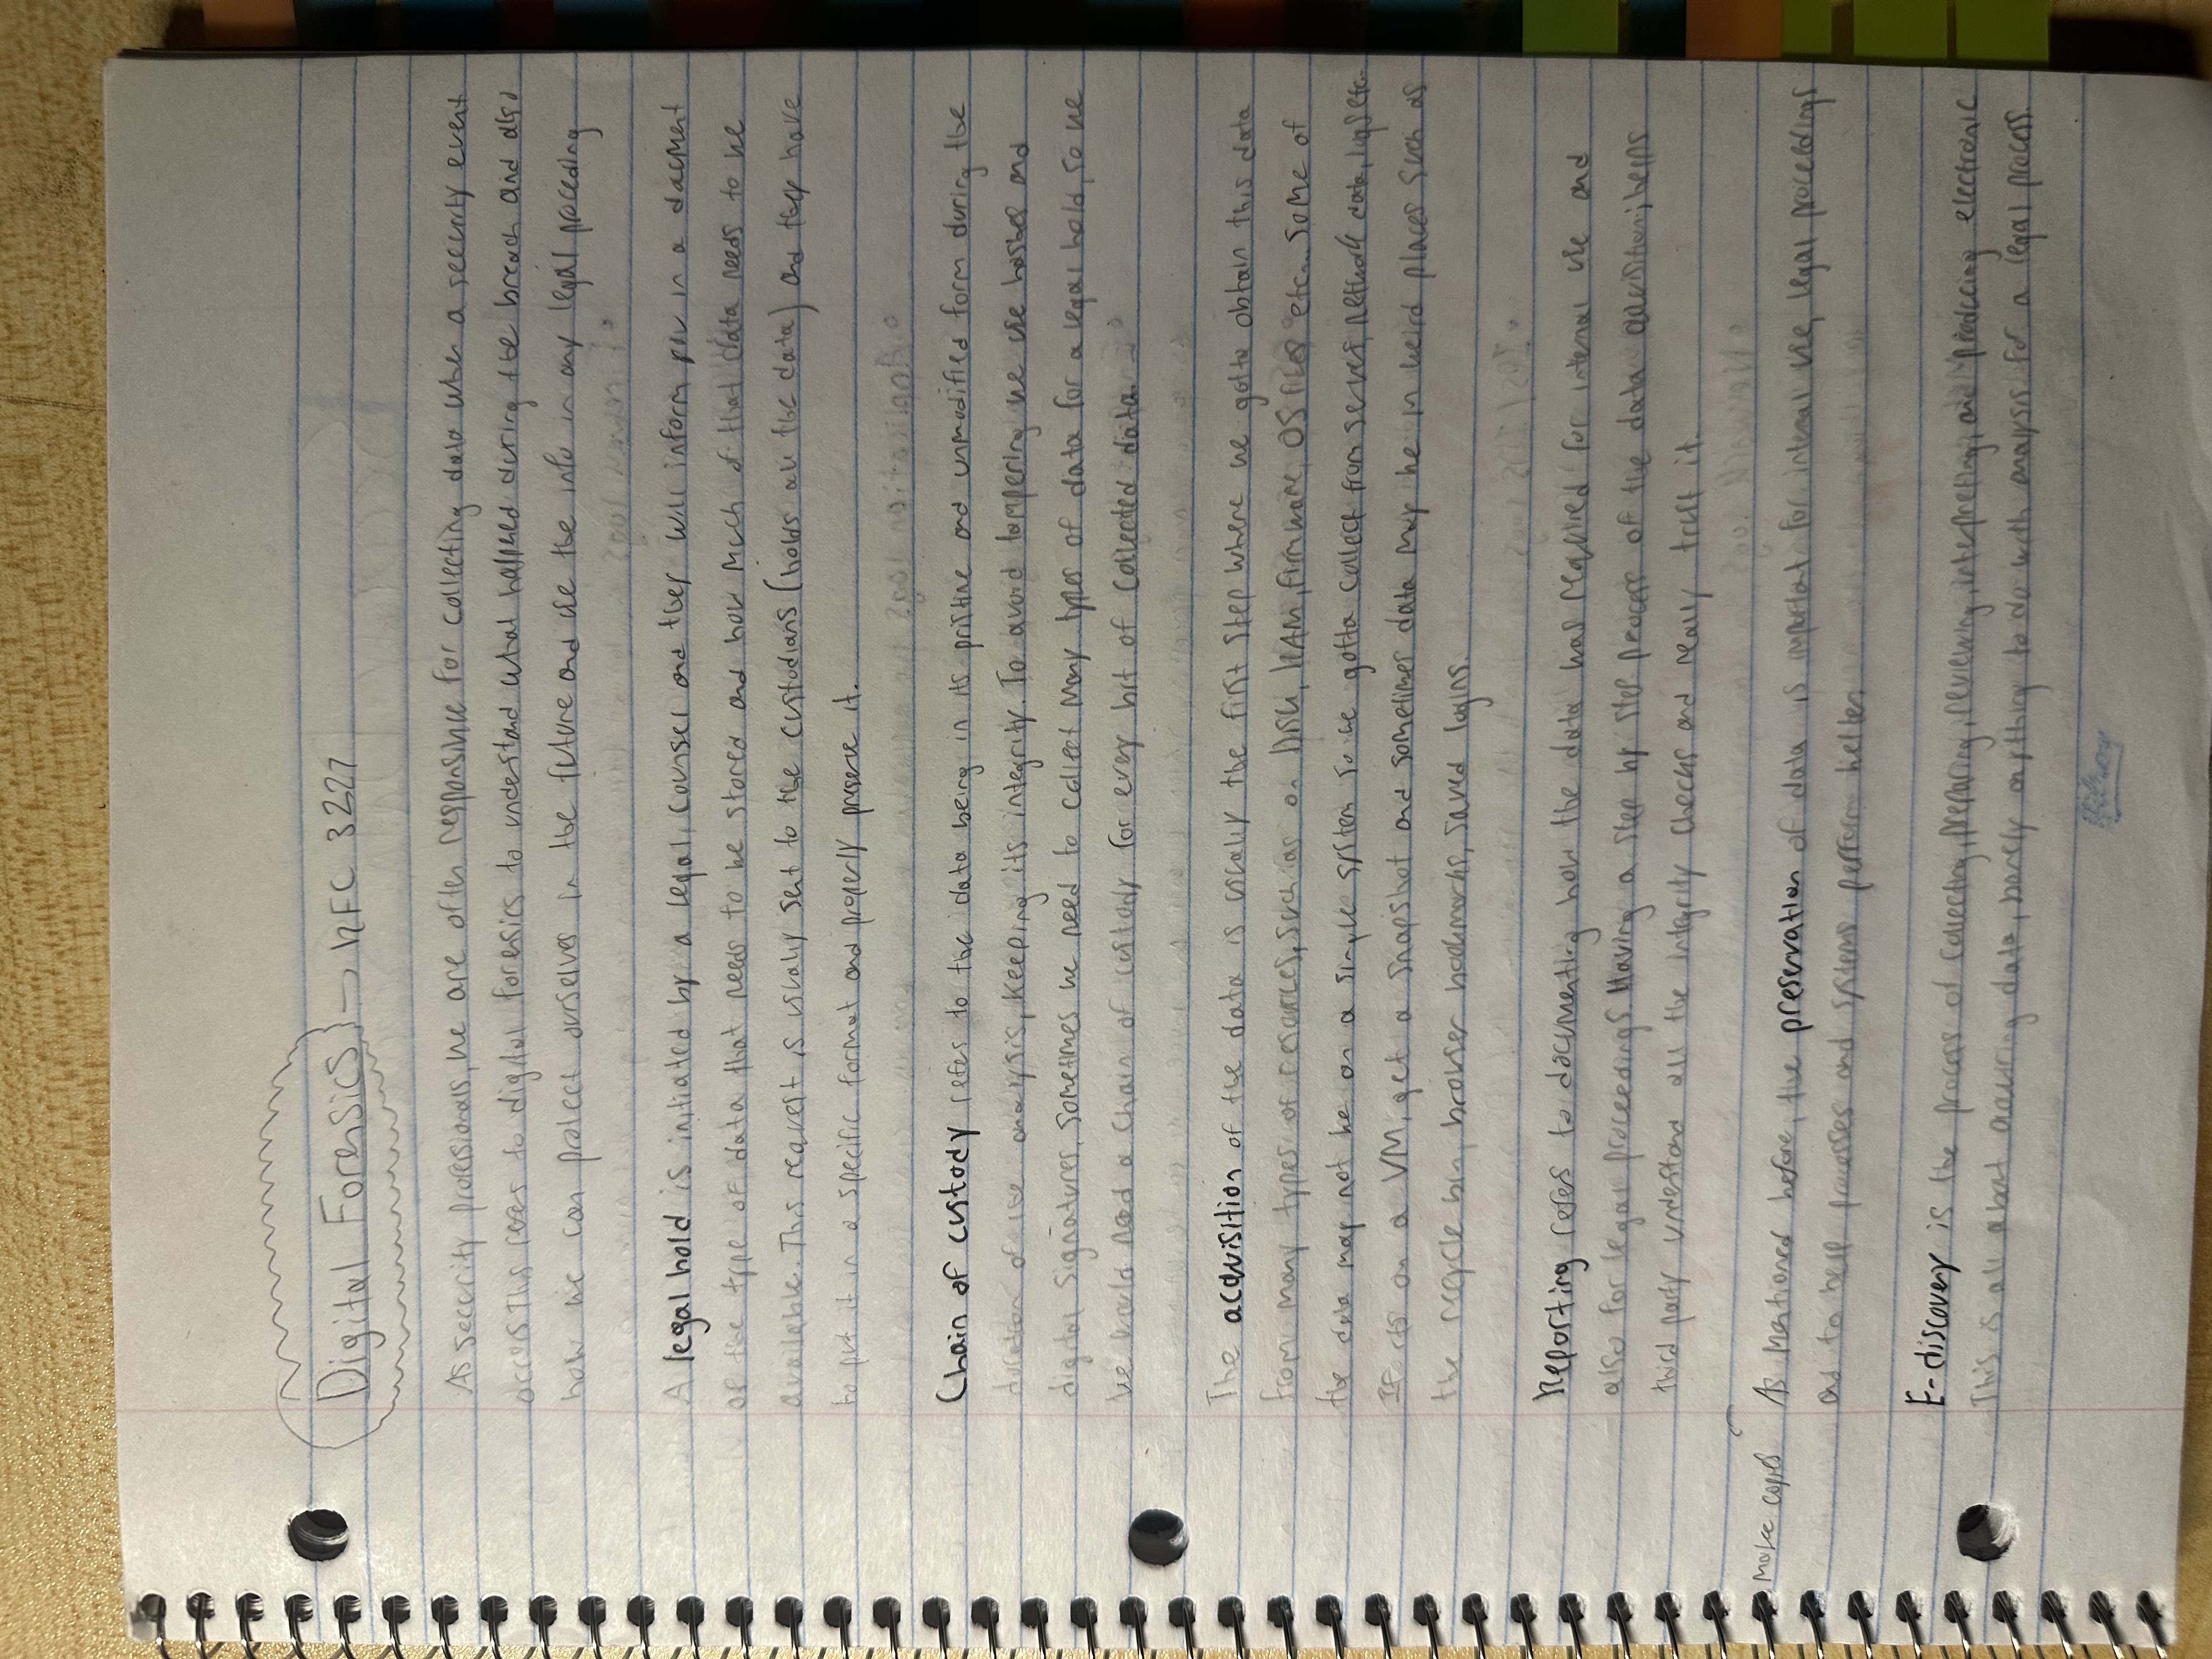 Digital Forensics → RFC 3227
As security professionals, we are often responsible for collecting data when a security event
occurs This refers to digital forensics to understand what happened during the breach and also
how we can protect ourselves in the future and use the info in any legal proceding
A legal hold is initiated by a legal counsel and they will inform you in a docment
of the type of data that needs to be stored and how much of that data needs to be
available. This request is usually sent to the custodians (holds all the data) and they have
to put it in a specific format and properly preserve it.
Chain of custody refers to the data being in its pristine and unmodified form during the
duration of the analysis, keeping its integrity. To avoid tampering we use hashes and
digital signatures. Sometimes we need to collect many types of data for a legal hold, so we
we would need a chain of custody for every bit of collected data.
The acquisition of the data is usually the first step where we gotta obtain this data
from many types of resources, such as on DISK, RAM, firmware, OS files etc... Some of
the data may not be on a single system so we gotta collect from server, network data, logs etc...
If its on a VM, get a snapshot and sometimes data may be in weird places such as
the recycle bin, browser bookmarks, saved logins.
Reporting refers to documenting how the data was required for internal use and
also for legal proceedings. Having a step by step process of the data helps
third party understand all the integrity checks and really trust it.
Make copies
As mentioned before, the preservation of data is important for internal use, legal proceedings
and to help processes and systems perform better.
E-discovery is the process of collecting, preparing, reviewing, interpreting, and producing electronic
This is all about acquiring data, barely anything to do with analysis for a legal process.
Hilroy